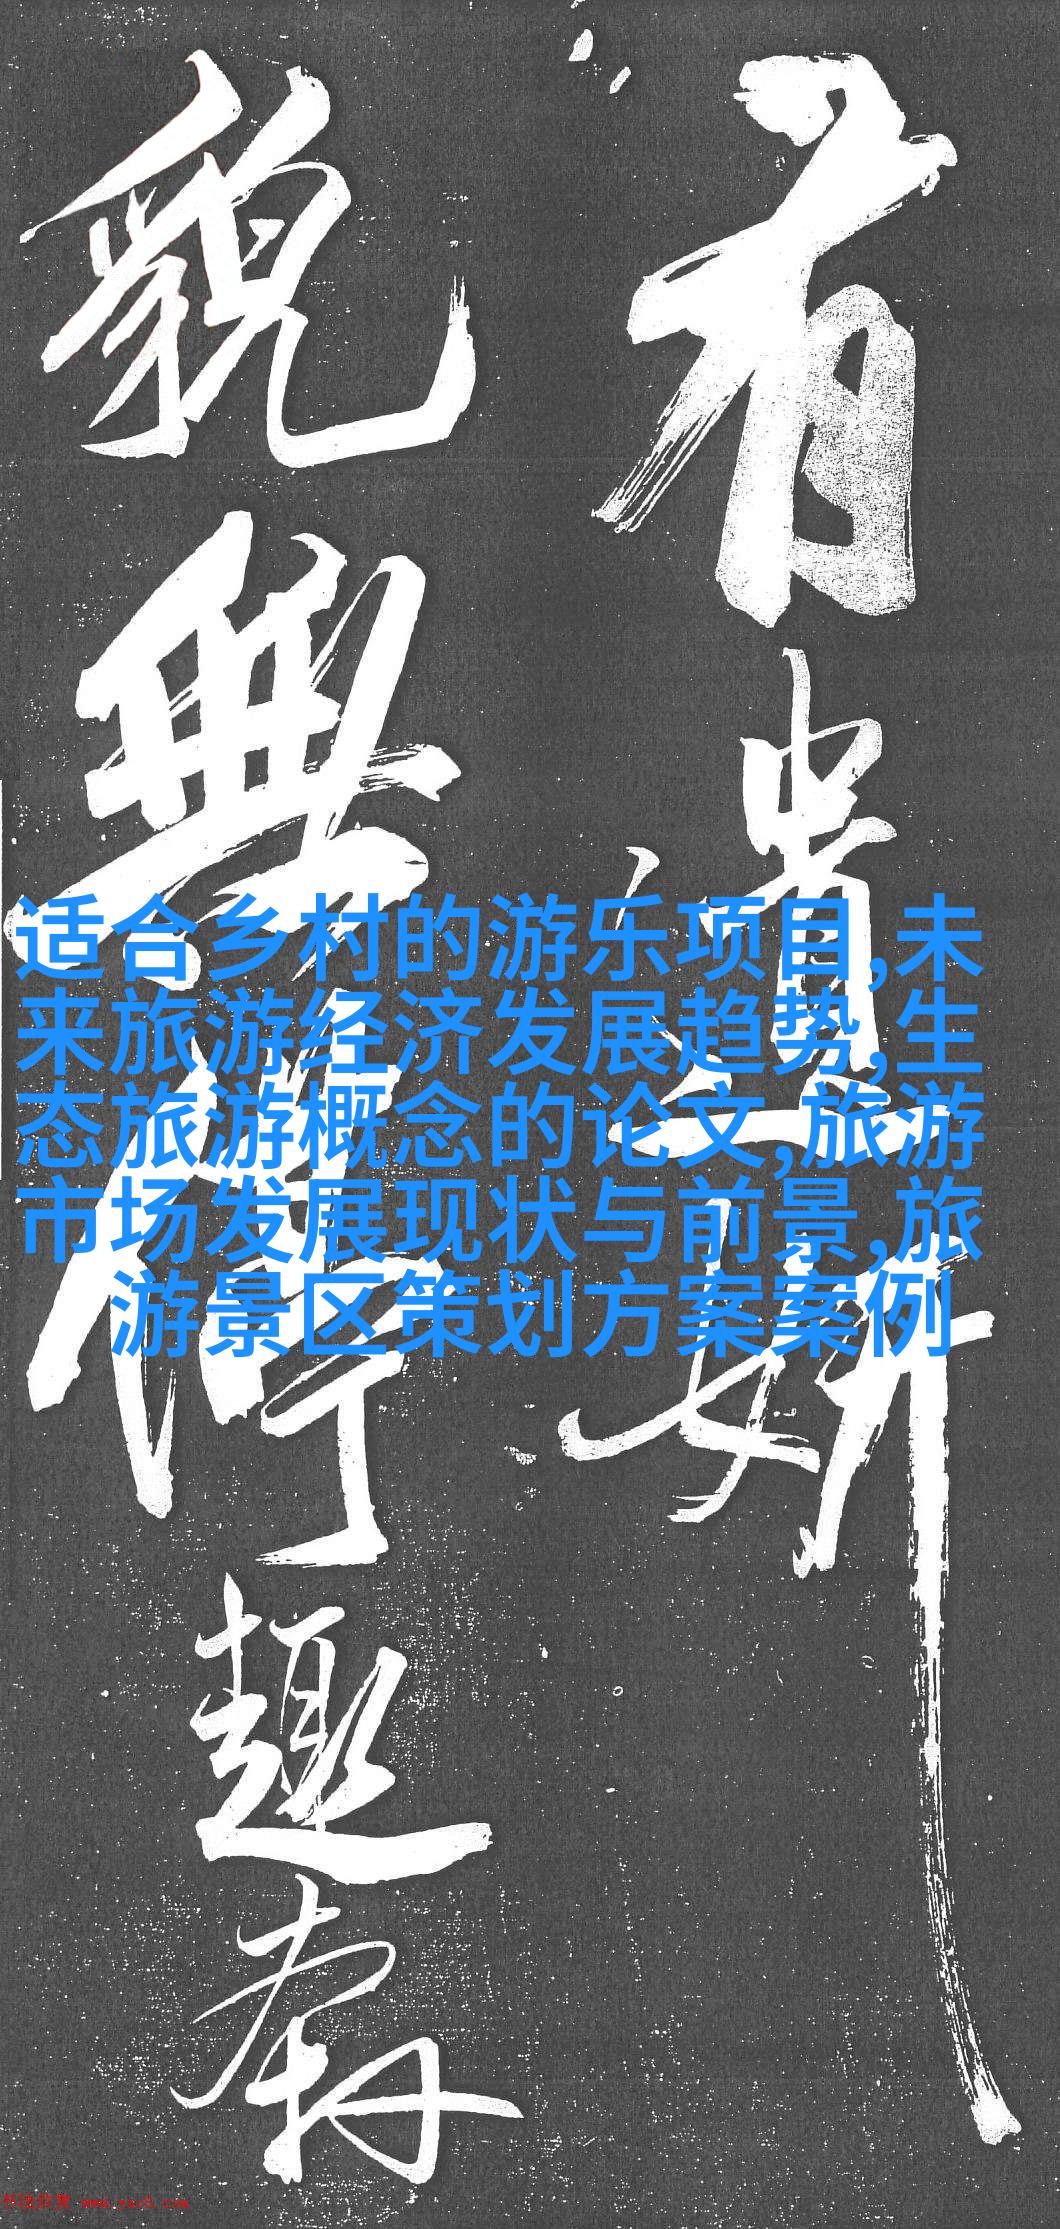 有遗妍
貌無停趣
适合乡村的游乐项目,未
来旅游经济发展趋势,生
态旅游概念的论文,旅游
市场发展现状与前景,旅
游景区策划方案案例
书法欣赏 www.yac8.com